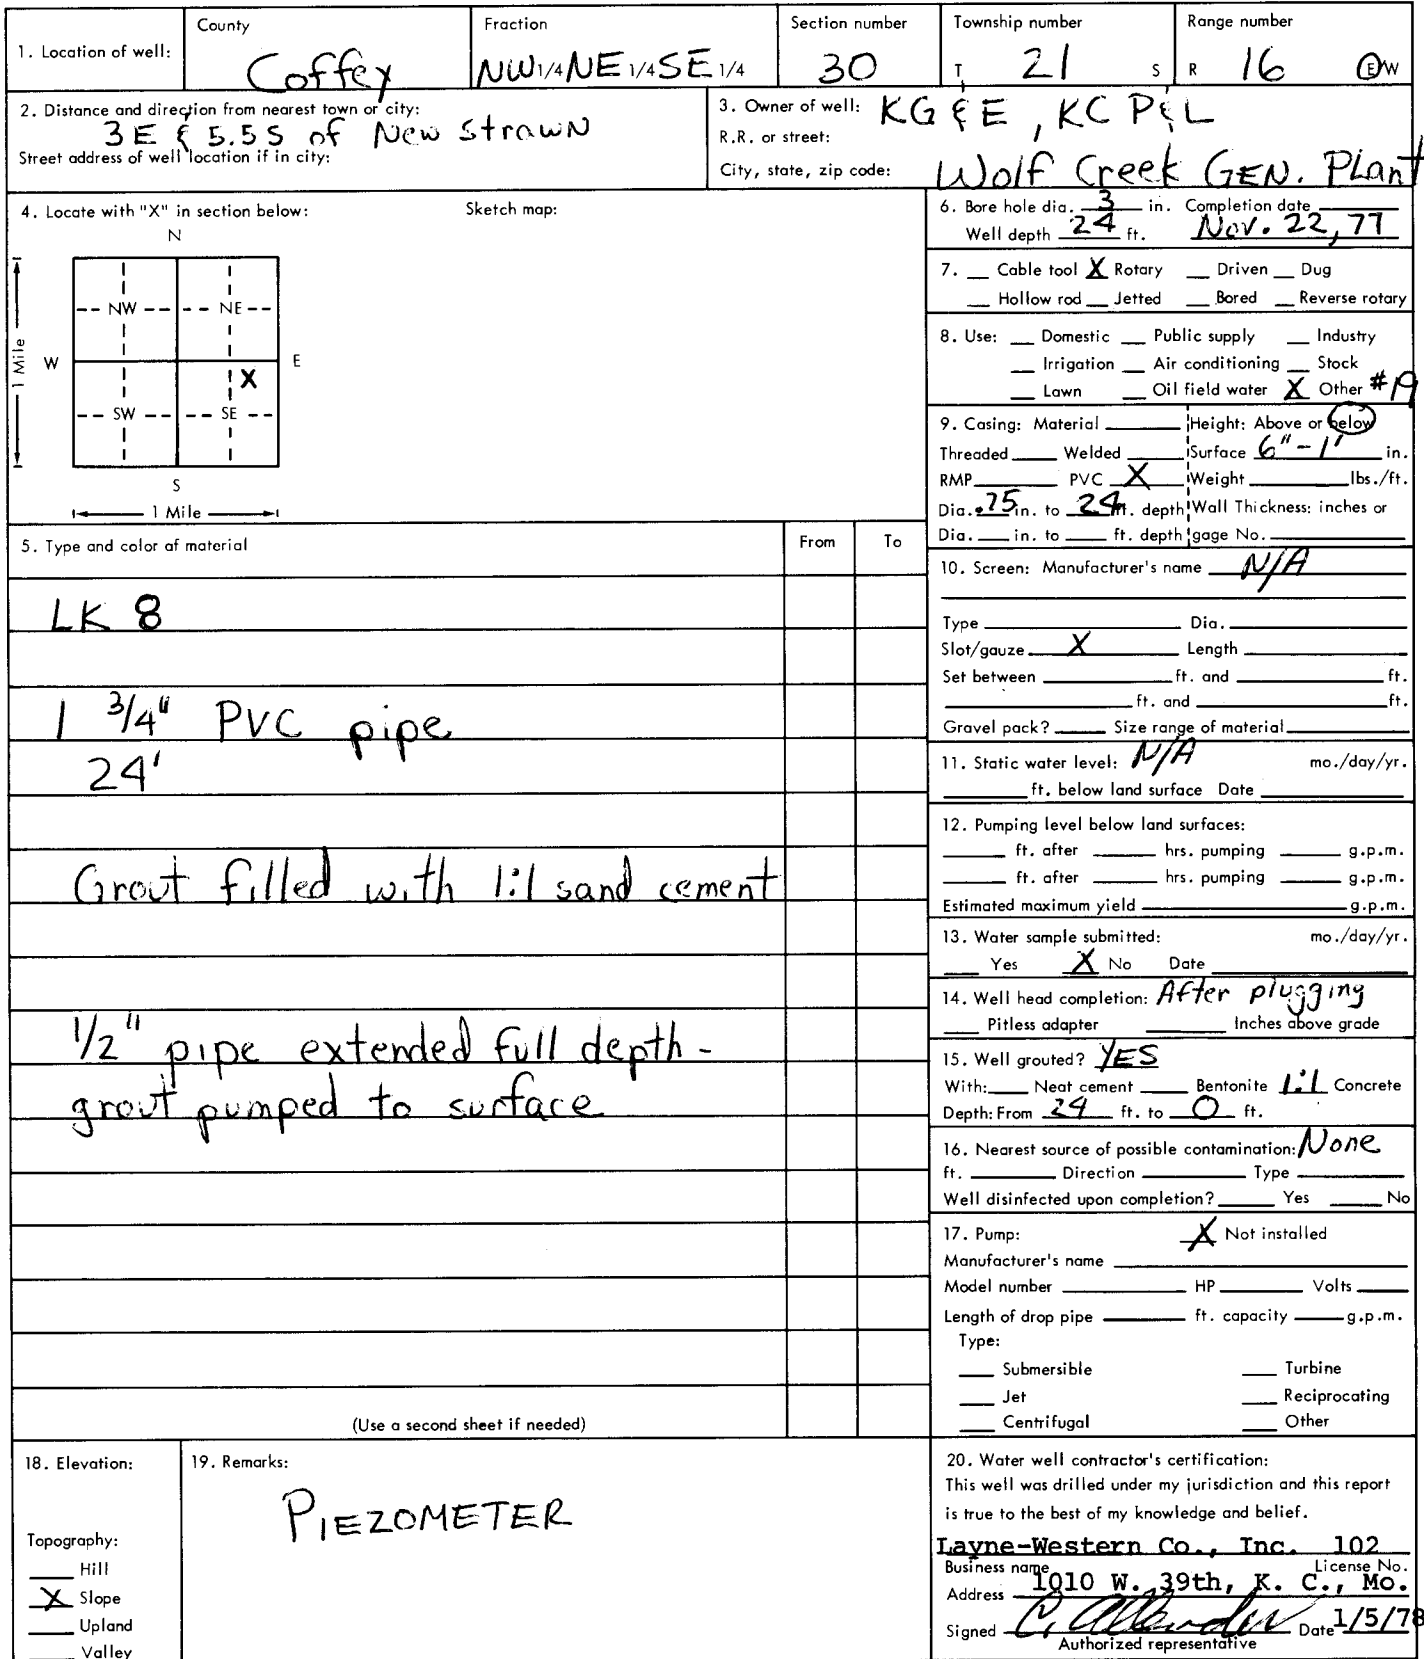 1. Location of well:
County
Coffey
Fraction
NW 1/4 NE 1/4 SE 1/4
Section number
30
Township number
T 21 S
Range number
R 16 E/W
2. Distance and direction from nearest town or city:
3 E & 5.5 S of New Strawn
Street address of well location if in city:
3. Owner of well: KG & E, KC P&L
R.R. or street:
City, state, zip code: Wolf Creek GEN. Plant
4. Locate with "X" in section below:
Sketch map:
N
NW NE
W E
1 Mile
X
SW SE
S
1 Mile
5. Type and color of material
From To
LK 8
1 3/4" PVC pipe
24'
Grout filled with 1:1 sand cement
1/2" pipe extended full depth -
grout pumped to surface
(Use a second sheet if needed)
6. Bore hole dia. 3 in. Completion date
Well depth 24 ft. Nov. 22, 77
7. __ Cable tool X Rotary __ Driven __ Dug
__ Hollow rod __ Jetted __ Bored __ Reverse rotary
8. Use: __ Domestic __ Public supply __ Industry
__ Irrigation __ Air conditioning __ Stock
__ Lawn __ Oil field water X Other #19
9. Casing: Material ____ Height: Above or below
Threaded ____ Welded ____ Surface 6"-1' in.
RMP ____ PVC X Weight ____ lbs./ft.
Dia. .75 in. to 24 ft. depth Wall Thickness: inches or
Dia. ___ in. to ___ ft. depth gage No. ____
10. Screen: Manufacturer's name N/A
Type ____ Dia. ____
Slot/gauze X Length ____
Set between ____ ft. and ____ ft.
____ ft. and ____ ft.
Gravel pack? ___ Size range of material ____
11. Static water level: N/A mo./day/yr.
____ ft. below land surface Date ____
12. Pumping level below land surfaces:
____ ft. after ____ hrs. pumping ____ g.p.m.
____ ft. after ____ hrs. pumping ____ g.p.m.
Estimated maximum yield ____ g.p.m.
13. Water sample submitted: mo./day/yr.
__ Yes X No Date ____
14. Well head completion: After plugging
__ Pitless adapter ____ Inches above grade
15. Well grouted? YES
With: __ Neat cement __ Bentonite 1:1 Concrete
Depth: From 24 ft. to 0 ft.
16. Nearest source of possible contamination: None
ft. ____ Direction ____ Type ____
Well disinfected upon completion? ___ Yes ___ No
17. Pump: X Not installed
Manufacturer's name ____
Model number ____ HP ____ Volts ____
Length of drop pipe ____ ft. capacity ____ g.p.m.
Type:
__ Submersible __ Turbine
__ Jet __ Reciprocating
__ Centrifugal __ Other
18. Elevation:
Topography:
__ Hill
X Slope
__ Upland
__ Valley
19. Remarks:
PIEZOMETER
20. Water well contractor's certification:
This well was drilled under my jurisdiction and this report
is true to the best of my knowledge and belief.
Layne-Western Co., Inc. 102
Business name License No.
Address 1010 W. 39th, K. C., Mo.
Signed Date 1/5/78
Authorized representative